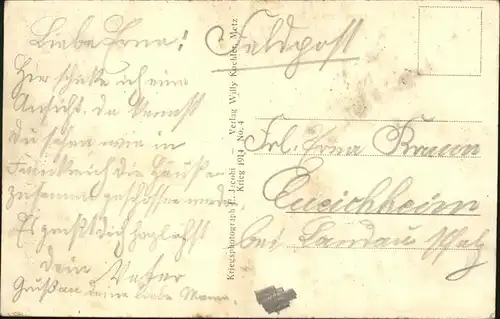 Liebe Erna!
Hier schicke ich eine
Ansicht. Da kannst
Du sehen wie in
Frankreich die Häuser
zusammen geschossen werden
Es grüßt Dich herzlichst
Dein Vater
Gruß an deine liebe Mama.
Kriegsphotograph E. Jacobi — Verlag Willy Koehler, Metz
Krieg 1914 No. 4
Feldpost
Frl. Erna Braun
Queichheim
bei Landau Pfalz